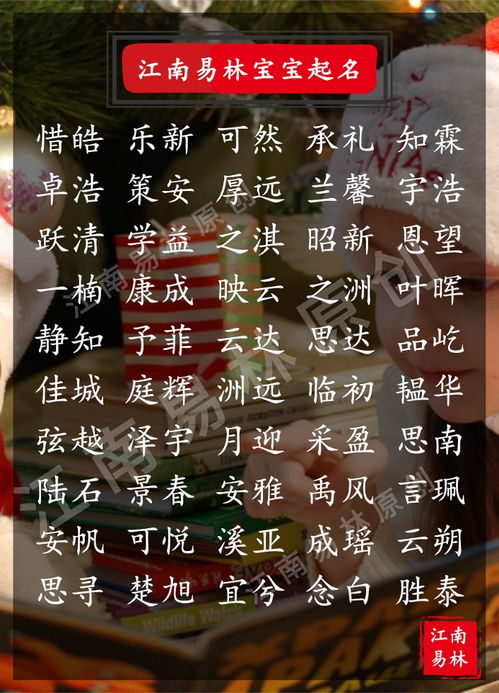 江南易林宝宝起名
惜皓 乐新 可然 承礼 知霖
卓浩 策安 厚远 兰馨 宇浩
跃清 学益 之淇 昭新 恩望
一楠 康成 映云 之洲 叶晖
静知 予菲 云达 思达 品屹
佳城 庭辉 洲远 临初 韫华
弦越 泽宇 月迎 采盈 思南
陆石 景春 安雅 禹风 言珮
安帆 可悦 溪亚 成瑶 云朔
思寻 楚旭 宜兮 念白 胜泰
江南易林原创
江南易林原创
江南易林原创
Wildlife Watch
江南
易林